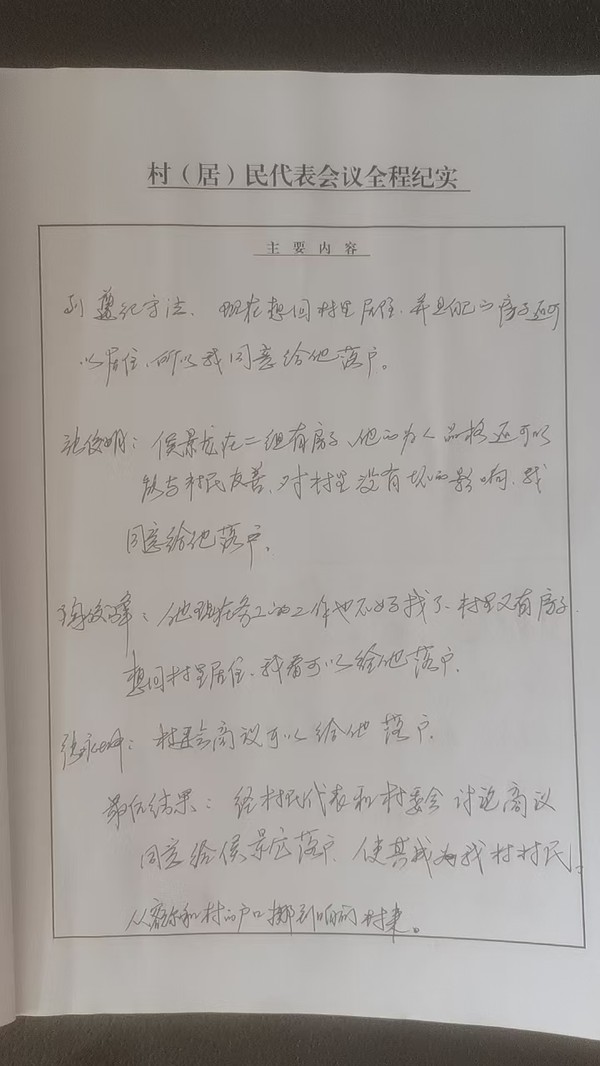 村（居）民代表会议全程纪实
主要内容
到遵纪守法、现在想回村里居住，并且自己的房子还可
以居住，所以我同意给他落户。
张俊明：侯景龙在二组有房子、他的为人品格还可以
能与村民友善，对村里没有坏的影响，我
同意给他落户。
他现在务工的工作也不好找了，村里又有房子
想回村里居住，我看可以给他落户。
村委会商议可以给他落户，
最后结果：经村民代表和村委会讨论商议
同意给侯景龙落户，使其成为我村村民。
和村的户口挪到 村来。